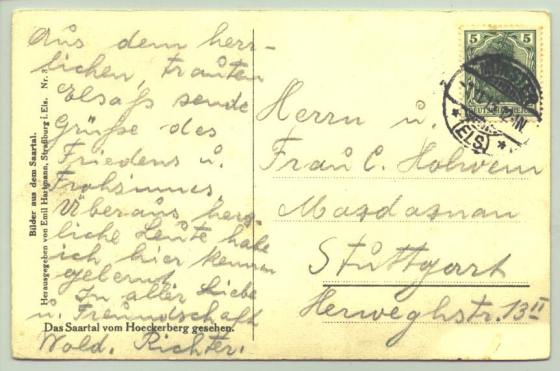 Aus dem herr-
lichen, trauten
Elsaß sende
Grüße des
Friedens u.
Frohsinnes
Überaus herz-
liche Leute habe
ich hier kennen
gelernt
In aller Liebe
u. Freundschaft
Wold. Richter.
Bilder aus dem Saartal.
Herausgegeben von Emil Hartmann, Straßburg i. Els. Nr. 3
Das Saartal vom Hoeckerberg gesehen.
5 5
(ELS)
Herrn u.
Frau C. Holwein
Mazdaznan
Stuttgart
Herweghstr. 13 II